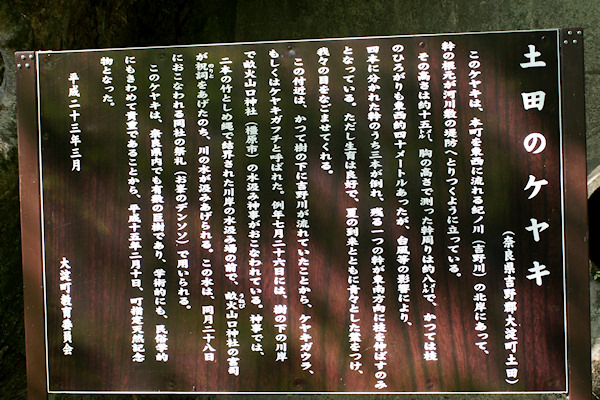 土田のケヤキ
(奈良県吉野郡大淀町土田)
このケヤキは、本町を東西に流れる紀ノ川(吉野川)の北岸にあって、
幹の根元が河川敷の堤防へとりつくように立っている。
その高さは約十五メートル、胸の高さで測った幹周りは約八メートルで、かつては枝
のひろがりも東西約四十メートルあったが、台風等の被害により、
四本に分かれた幹のうち三本が倒れ、残る一つの幹が東南方向に枝を伸ばすのみ
となっている。ただし生育は良好で、夏の到来とともに青々とした葉をつけ、
我々の目をなごませてくれる。
この付近は、かつて樹の下に吉野川が流れていたことから、ケヤキガウラ、
もしくはケヤキガフチと呼ばれた。例年七月二十六日には、樹の下の川岸
で畝火山口神社(橿原市)の水汲み神事がおこなわれている。神事では、
二本の竹としめ縄で結界された川岸の水汲み場の前で、畝火山口神社の宮司
が祝詞をあげたのち、川の水が汲みあげられる。この水は、同月二十八日
におこなわれる同社の祭礼(お峯のデンソソ)で用いられる。
このケヤキは、奈良県内でも有数の巨樹であり、学術的にも、民俗学的
にもきわめて貴重であることから、平成十五年二月十日、町指定天然記念
物となった。
平成二十三年三月
大淀町教育委員会